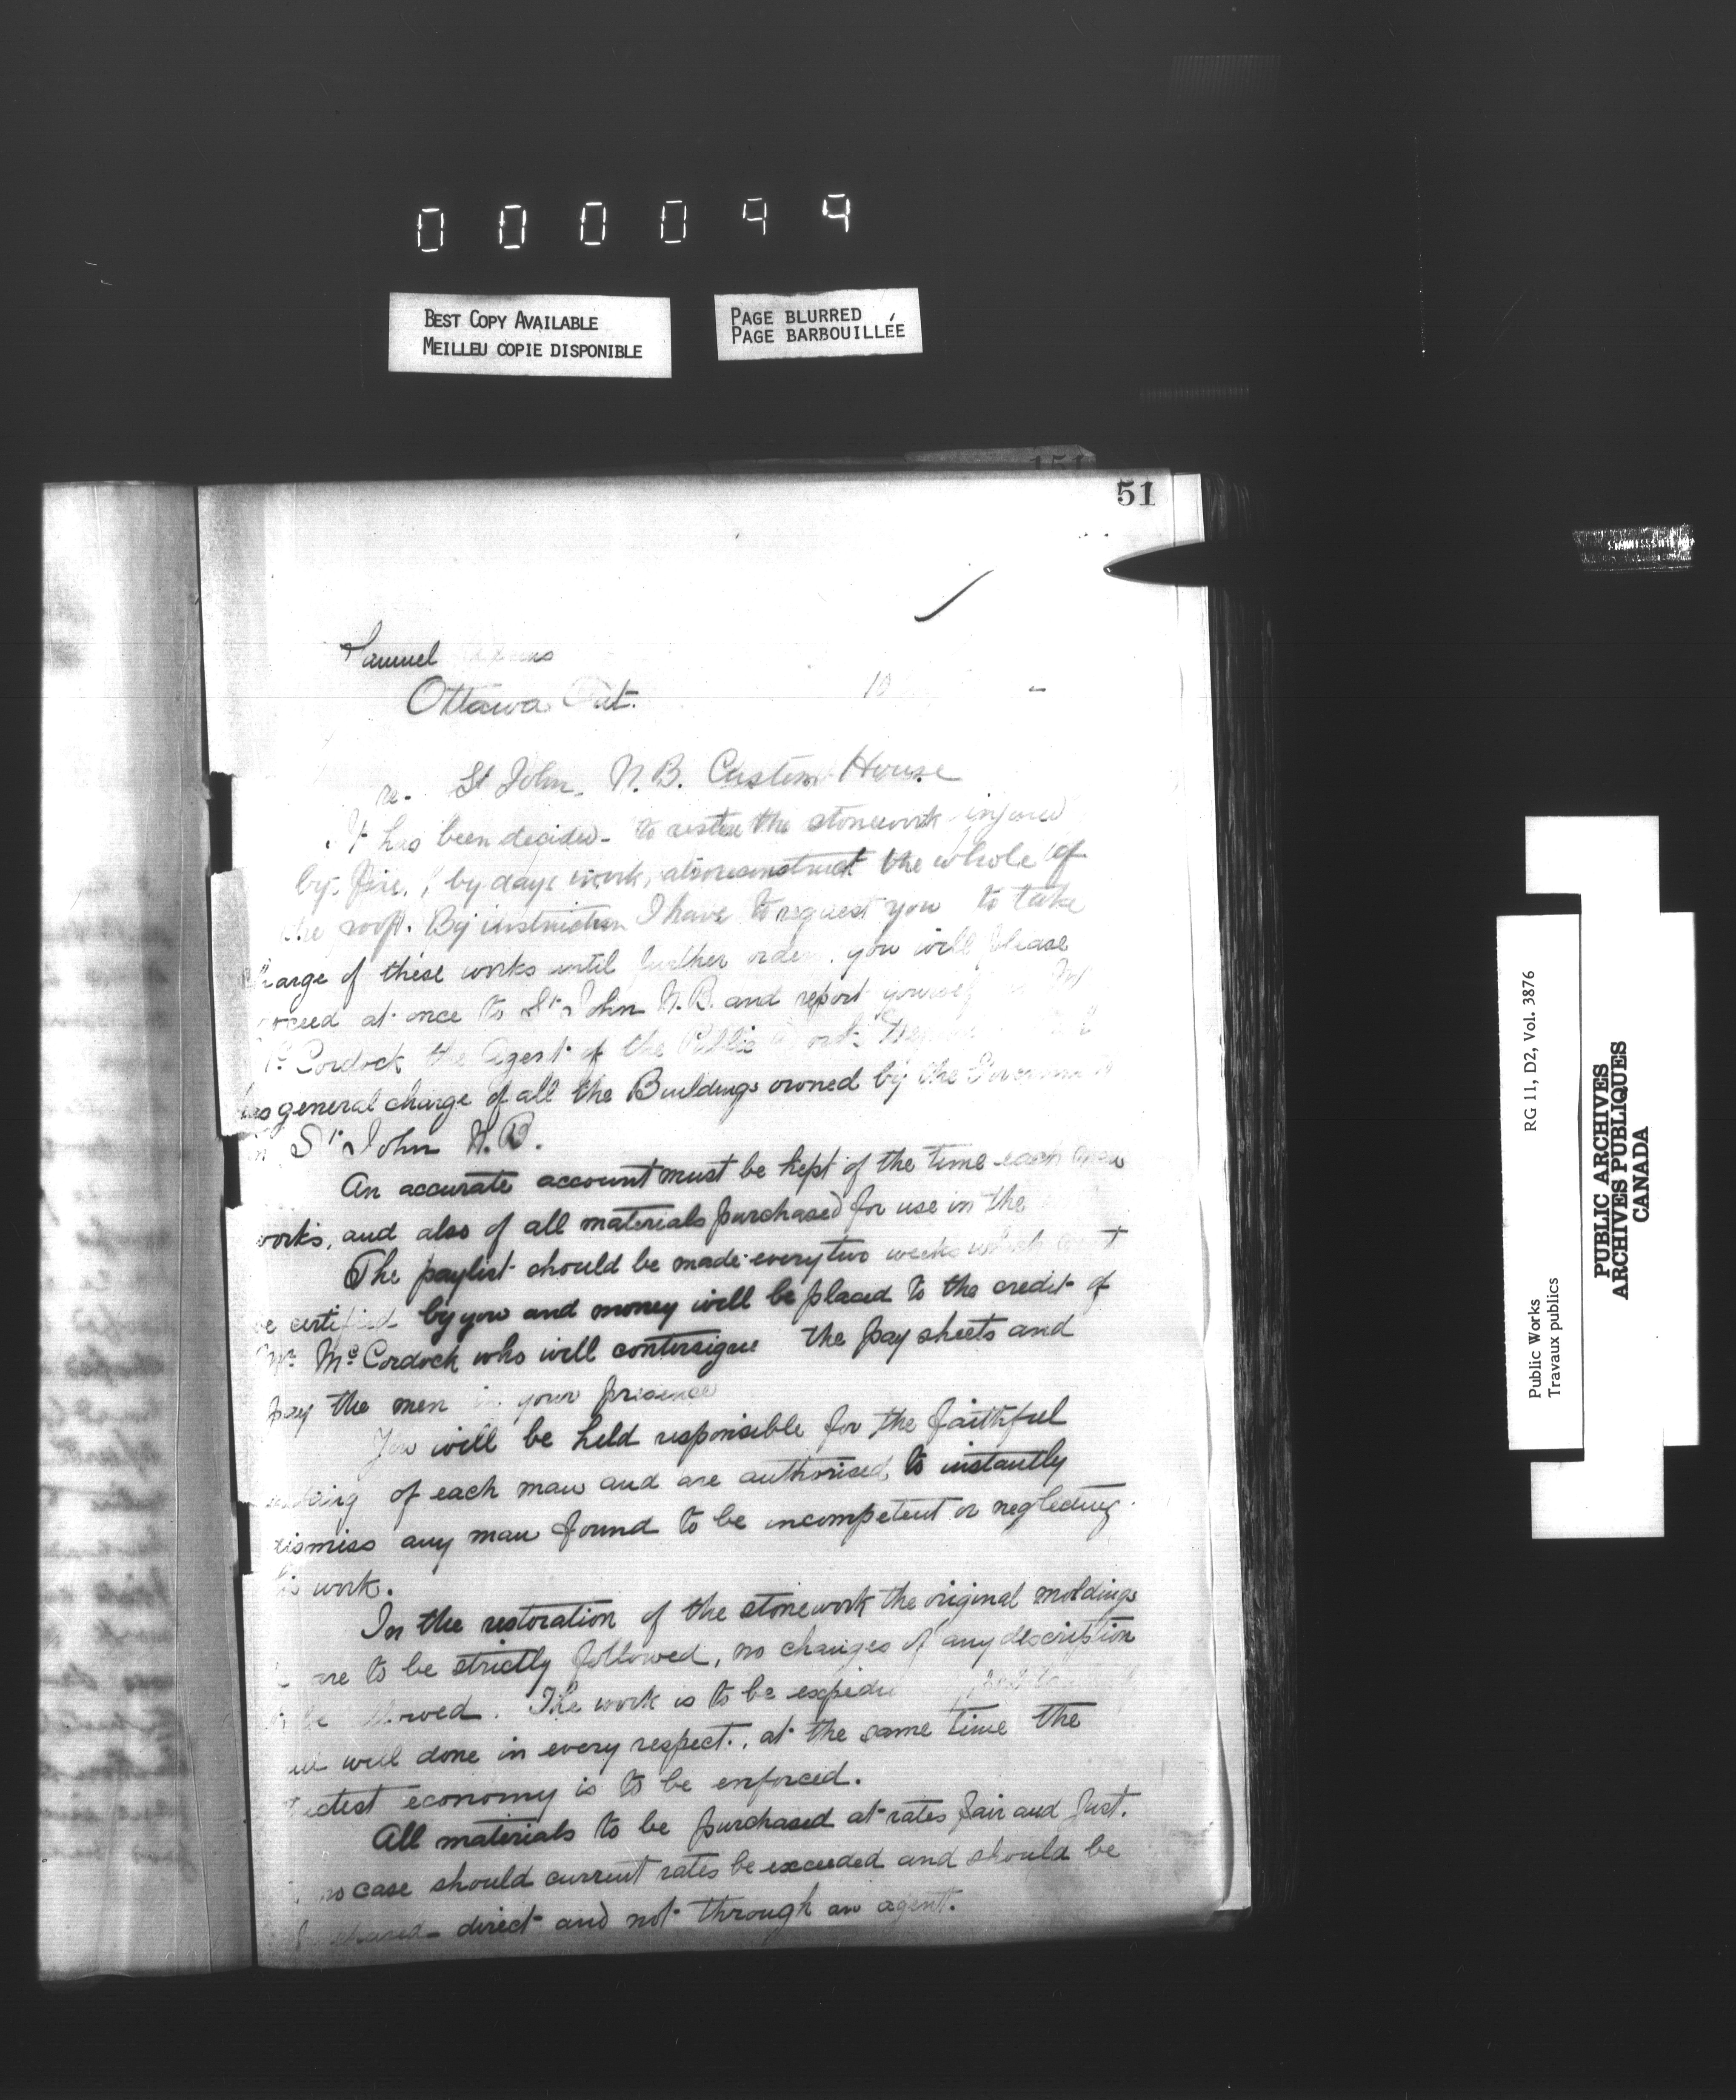 000099
BEST COPY AVAILABLE
MEILLEU COPIE DISPONIBLE
PAGE BLURRED
PAGE BARBOUILLÉE
151
51
Samuel
Ottawa Ont.
10
re. St John. N.B. Custom House
It has been decided to restore the stonework injured
by fire, by days work, also reconstruct the whole of
the roof. By instruction I have to request you to take
charge of these works until further orders. you will please
proceed at once to St John N.B. and report yourself to Mr
Mc Cordock the Agent of the Public Works
has general charge of all the Buildings owned by the Government
in St John N.B.
An accurate account must be kept of the time each man
works, and also of all materials purchased for use in the
The paylist should be made every two weeks which must
be certified by you and money will be placed to the credit of
Mr. Mc Cordock who will contersigne the pay sheets and
pay the men in your presence
You will be held responsible for the faithful
working of each man and are authorised to instantly
dismiss any man found to be incompetent or neglecting
his work.
In the restoration of the stonework the original moldings
are to be strictly followed, no changes of any description
to be allowed. The work is to be
well done in every respect, at the same time the
strictest economy is to be enforced.
All materials to be purchased at rates fair and just.
In no case should current rates be exceeded and should be
purchased direct and not through an agent.
Public Works
Travaux publics
RG 11, D2, Vol. 3876
PUBLIC ARCHIVES
ARCHIVES PUBLIQUES
CANADA